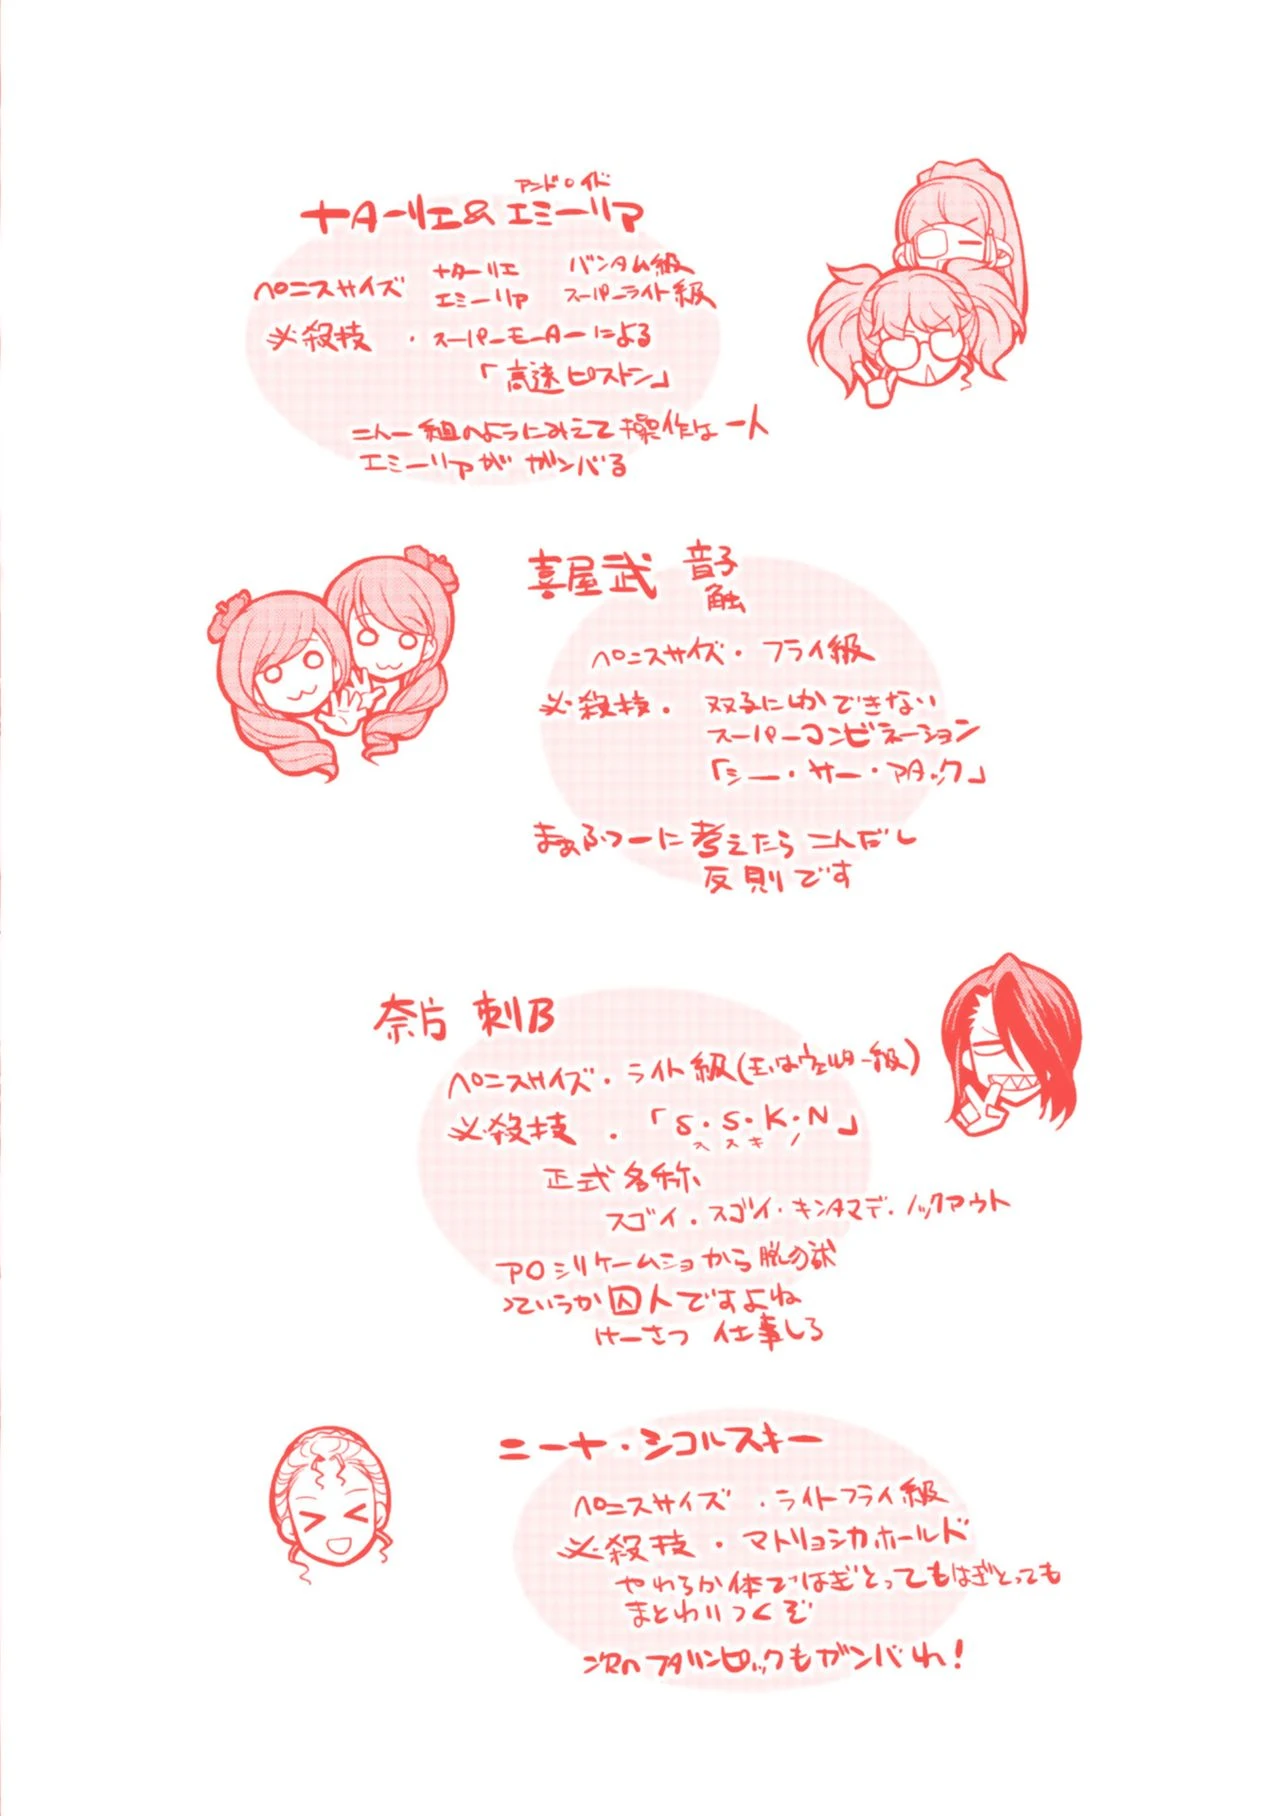 アンドロイド
ナターリエ&エミーリア
ペニスサイズ ナターリエ バンタム級
エミーリア スーパーライト級
必殺技 ・スーパーモーターによる
「高速ピストン」
二人一組のようにみえて操作は一人
エミーリアがガンバる
喜屋武 音子
触
ペニスサイズ・フライ級
必殺技・双子にしかできない
スーパーコンビネーション
「シー・サー・アタック」
まぁふつーに考えたら二人だし
反則です
奈片 刺B
ペニスサイズ・ライト級(玉はウェルター級)
必殺技・「S・S・K・N」
ススキノ
正式名称
スゴイ・スゴイ・キンタマデ・ノックアウト
アバシリケームショから脱獄
っていうか囚人ですよね
けーさつ 仕事しろ
ニーナ・シコルスキー
ペニスサイズ ・ライトフライ級
必殺技・マトリョシカホールド
やわらか体ではぎとってもはぎとっても
まとわりつくぞ
次のフタリンピックもガンバれ!